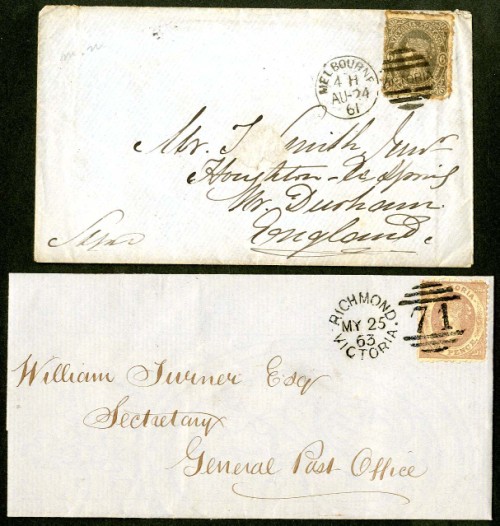 MELBOURNE
4 H
AU-24
61
VICTORIA
Mr. T. Smith Junr
Houghton-Le Spring
Nr. Durham
England.
RICHMOND.
MY 25
63
VICTORIA
71
William Turner Esq
Secretary
General Post Office